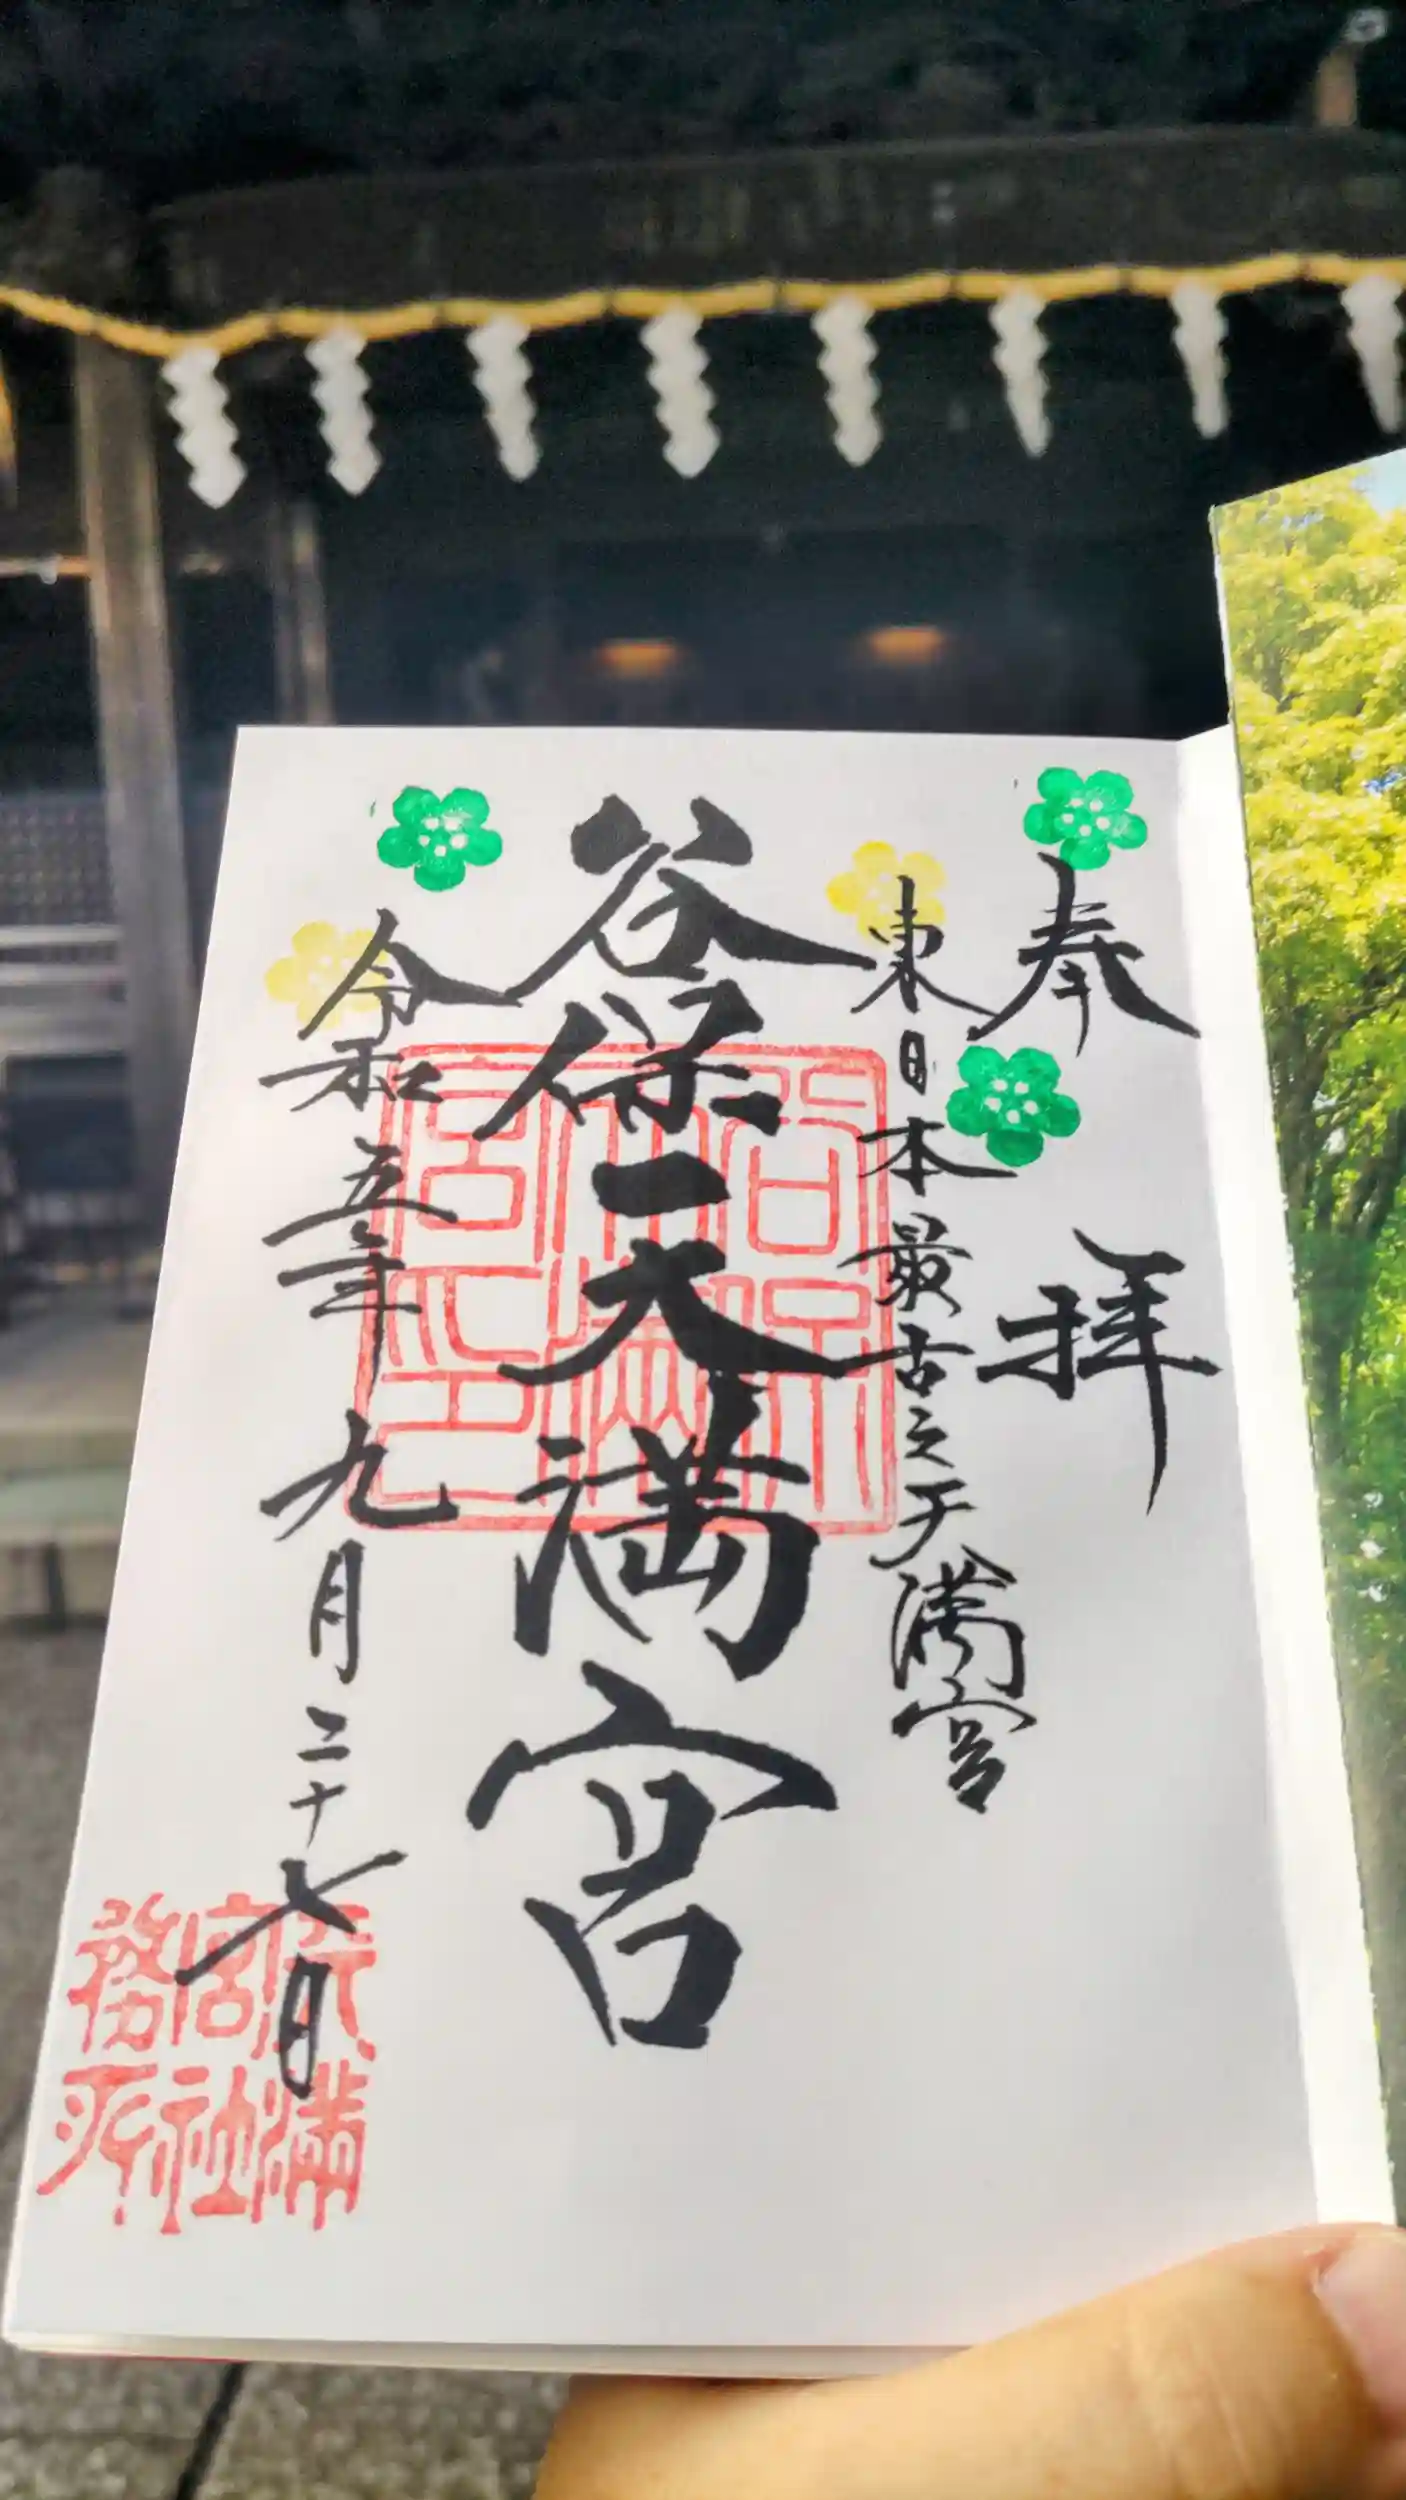 奉拝
東日本最古之天満宮
谷保天満宮
令和五年九月二十七日
谷保天満宮印
天満宮社務所